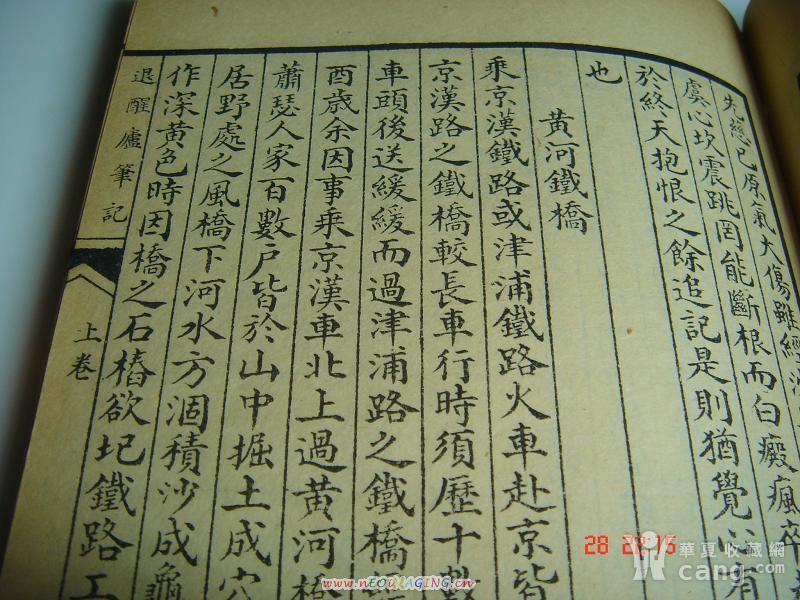 先慈已原氣大傷雖經
虞心坎震跳罔能斷根而白癜瘋卒
於終天抱恨之餘追記是則猶覺心有
也
黃河鐵橋
乘京漢鐵路或津浦鐵路火車赴京皆
京漢路之鐵橋較長車行時須歷十數
車頭後送緩緩而過津浦路之鐵橋
酉歲余因事乘京漢車北上過黃河橋
蕭瑟人家百數戶皆於山中掘土成穴
居野處之風橋下河水方涸積沙成龜
作深黃色時因橋之石樁欲圮鐵路工
退醒廬筆記
上卷
28 22:15
華夏收藏網
cang.com
www.nEOIMAGING.cn